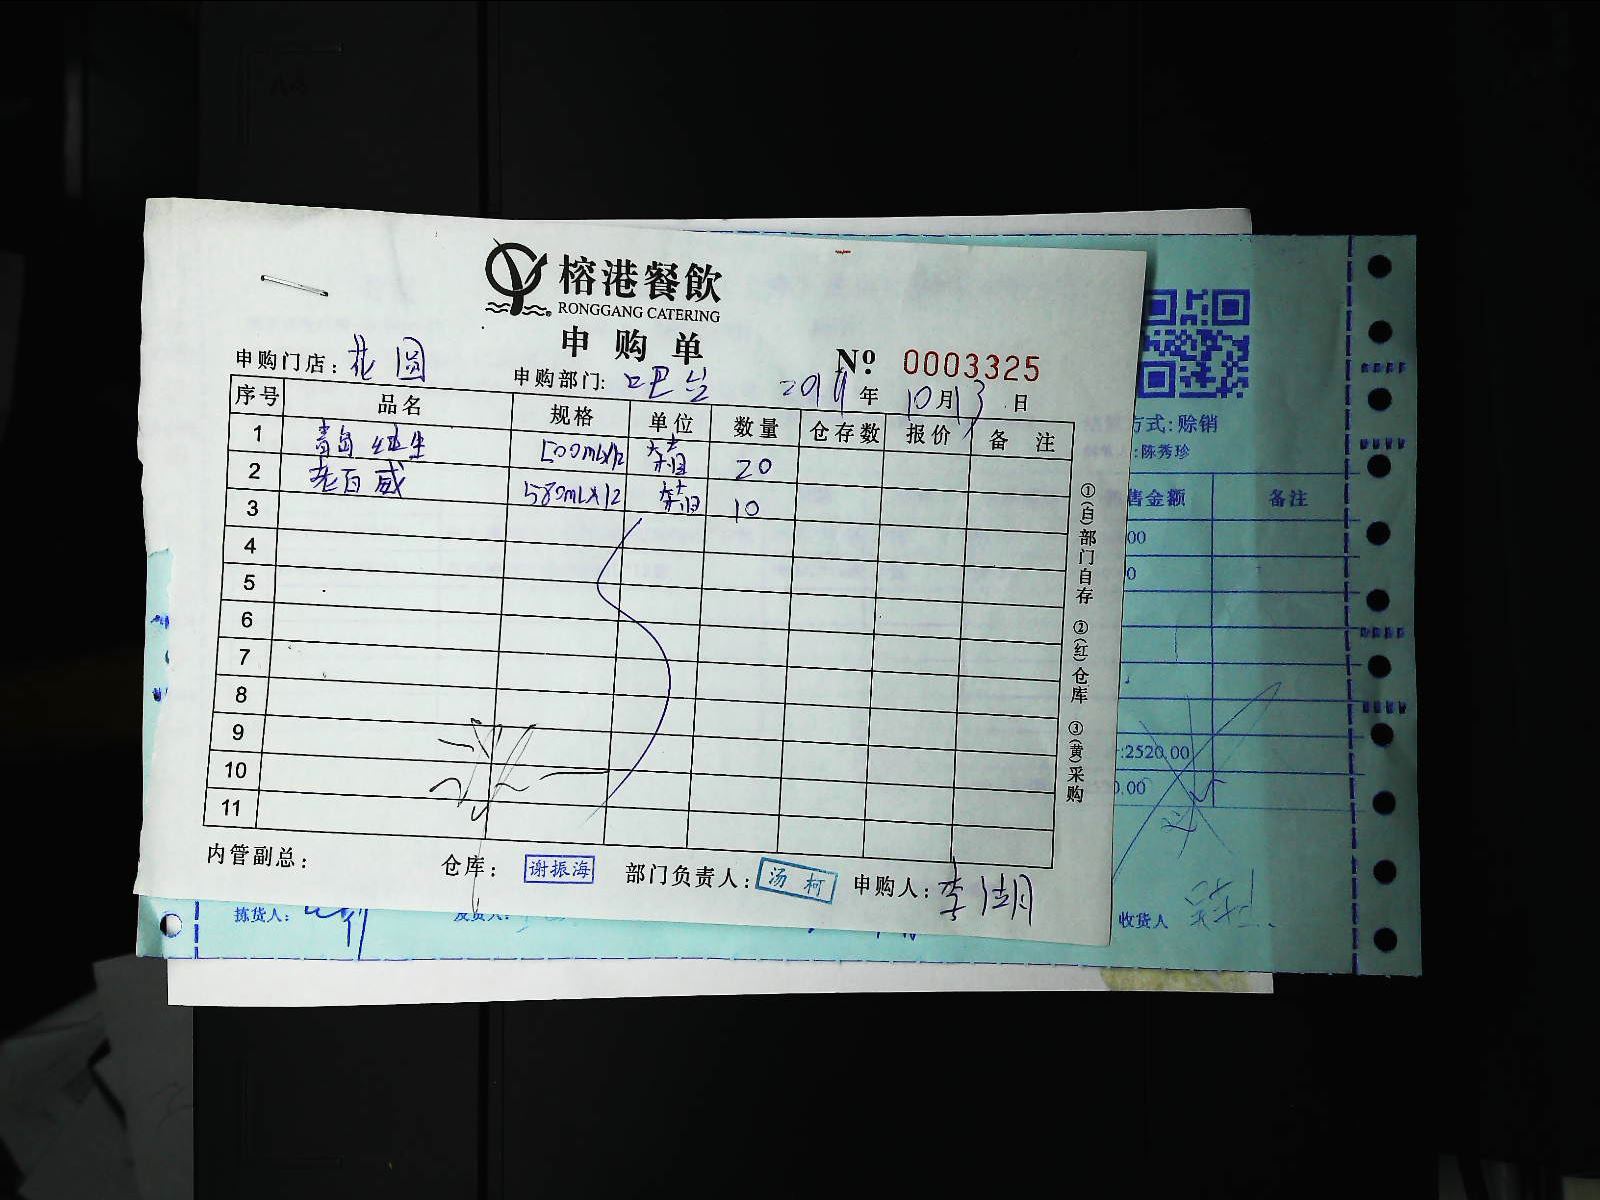 榕港餐飲
RONGGANG CATERING
申购单
申购门店：花园 申购部门：吧台 No 0003325
2019年10月13日
序号 品名 规格 单位 数量 仓存数 报价 备注
1 青岛纯生 500mLx12 箱 20
2 老百威 580mLx12 箱 10
3
4
5
6
7
8
9
10
11
①(白)部门自存 ②(红)仓库 ③(黄)采购
内管副总： 仓库：谢振海 部门负责人：汤柯 申购人：李
方式：赊销
：陈秀珍
售金额 备注
00
0
:2520.00
0.00
拣货人： 发货人： 收货人